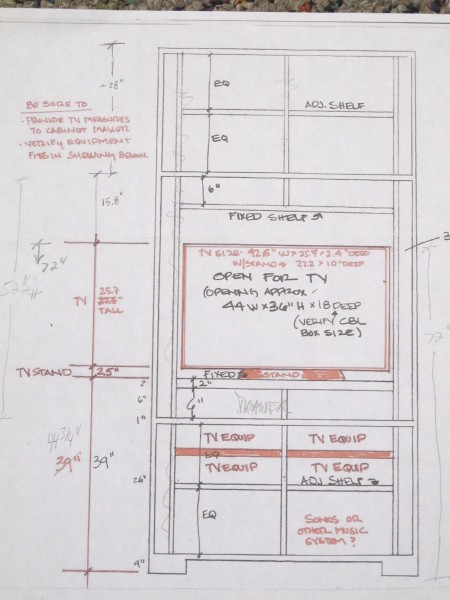 ~28"
EQ
ADJ. SHELF
BE SURE TO
• PROVIDE TV MEASURES
TO CABINET MAKER
• VERIFY EQUIPMENT
FITS IN SHELVING BELOW
EQ
15.8"
6"
FIXED SHELF
TV SIZE: 42.6" W x 25.7 x 2.4" DEEP
W/STAND → 27.2 x 10" DEEP
OPEN FOR TV
(OPENING APPROX.
44 W x 36" H x 18 DEEP
(VERIFY CBL
BOX SIZE)
72"
TV
25.7
TALL
72"
TV STAND
2.5"
FIXED
STAND
2"
2"
6"
6"
DRAWER
1"
TV EQUIP
TV EQUIP
44 3/4"
39"
39"
EQ
TV EQUIP
TV EQUIP
26"
ADJ. SHELF
EQ
SONOS OR
OTHER MUSIC
SYSTEM?
4"